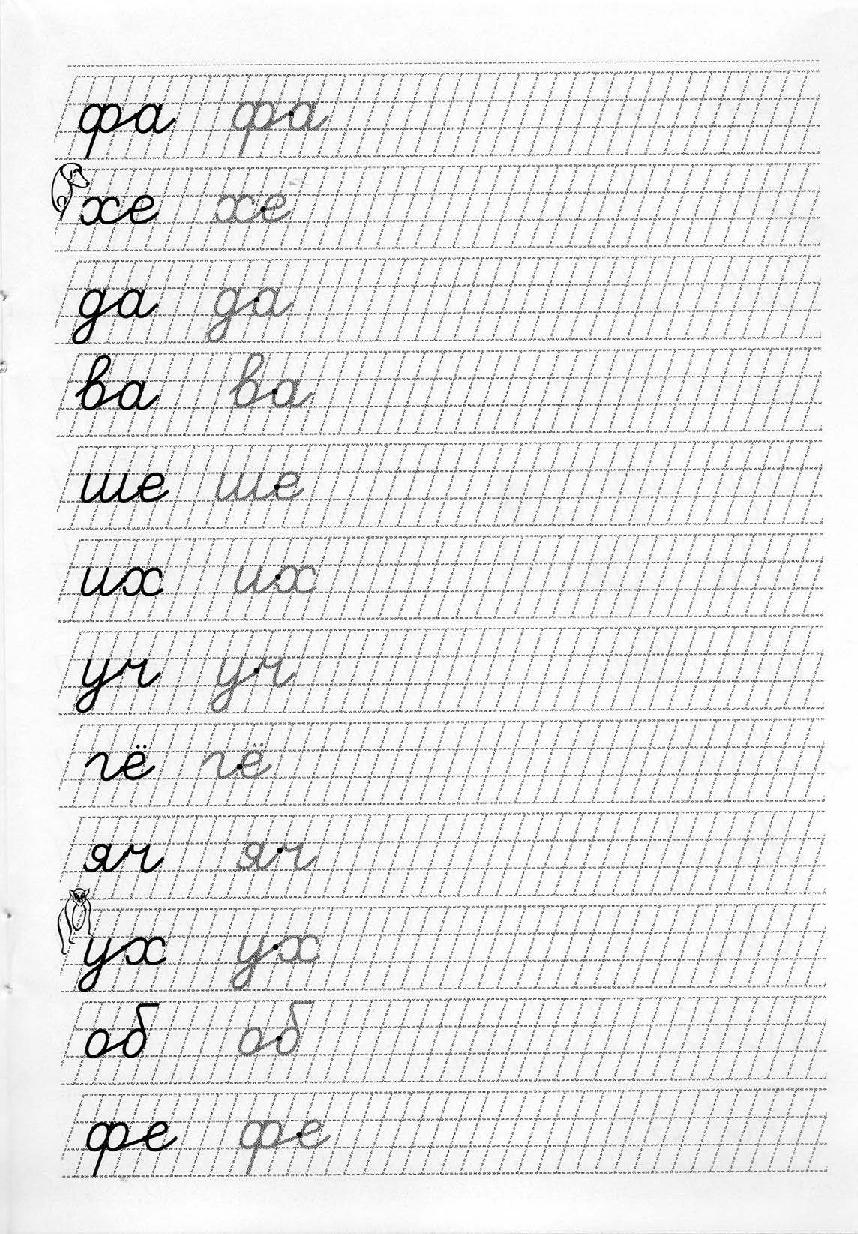 фа фа
хе хе
да да
ва ва
ше ше
их их
уч уч
гё гё
яч яч
ух ух
об об
фе фе